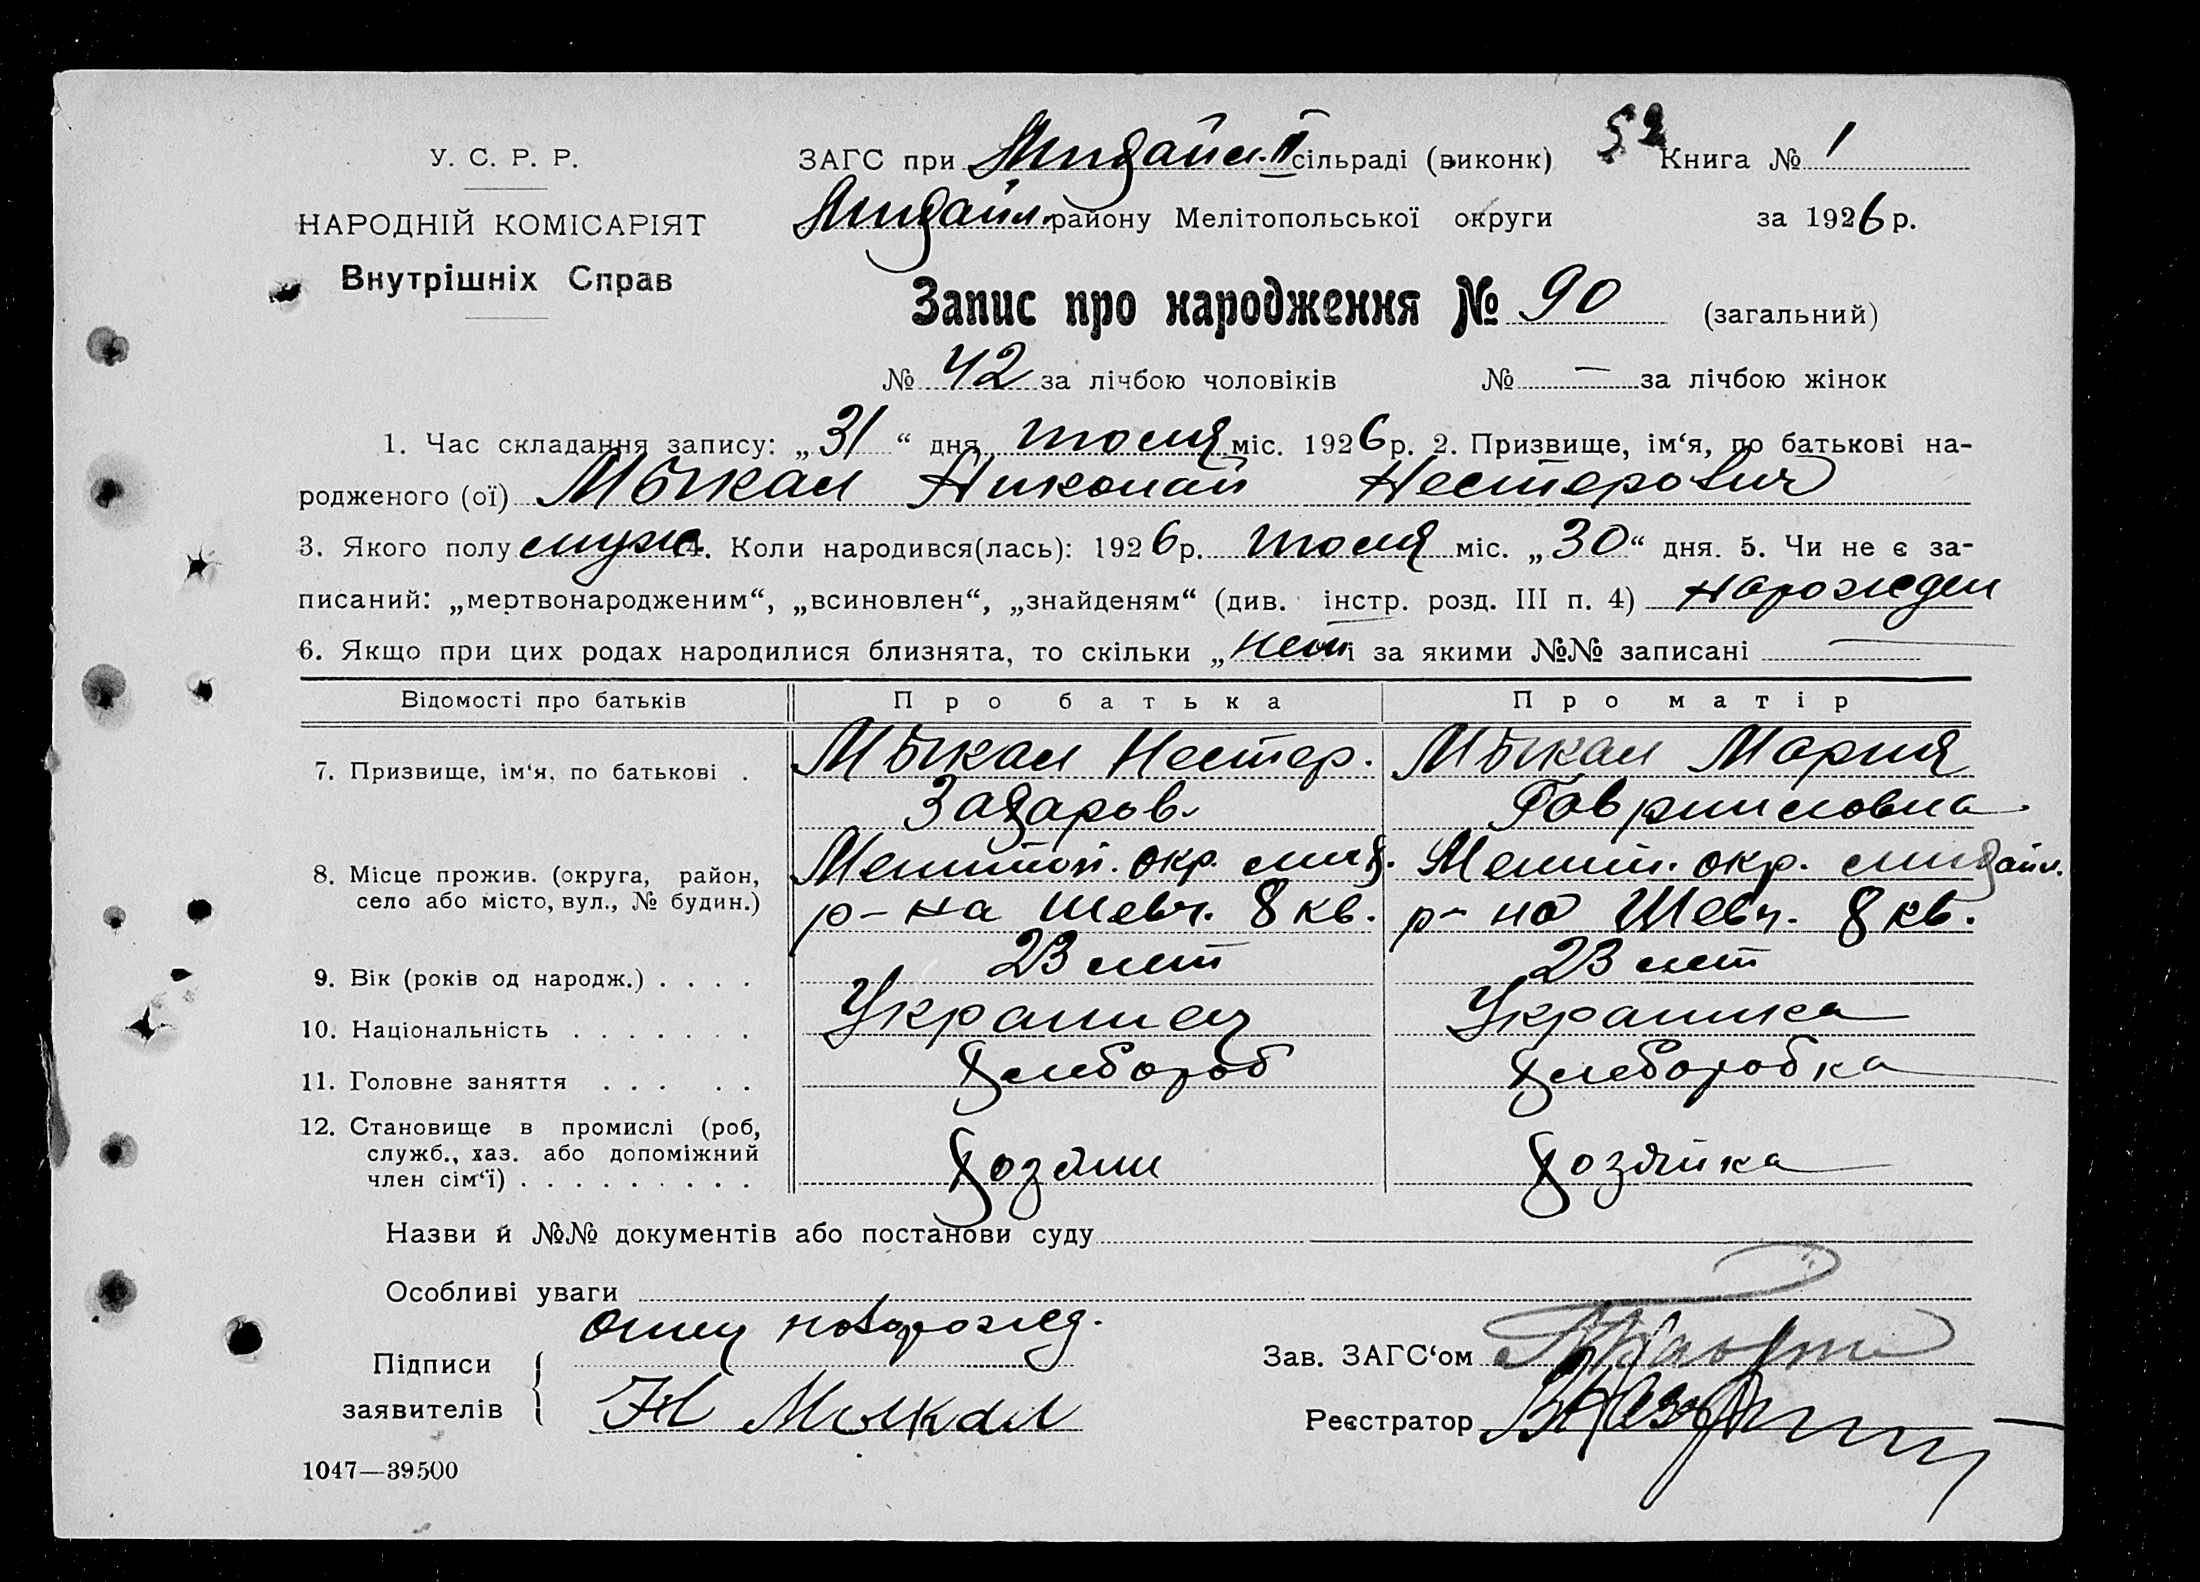 52
У. С. Р. Р.
НАРОДНІЙ КОМІСАРІЯТ
Внутрішніх Справ
ЗАГС при Михайл. II сільраді (виконк) Книга № 1
Михайл. району Мелітопольської округи за 1926 р.
Запис про народження № 90 (загальний)
№ 42 за лічбою чоловіків № — за лічбою жінок
1. Час складання запису: „31“ дня июля міс. 1926 р. 2. Призвище, ім‘я, по батькові на-
родженого (ої) Мыкал Николай Нестерович
3. Якого полу муж. 4. Коли народився(лась): 1926 р. июля міс. „30“ дня. 5. Чи не є за-
писаний: „мертвонародженим“, „всиновлен“, „знайденям“ (див. інстр. розд. III п. 4) нарожден
6. Якщо при цих родах народилися близнята, то скільки „нет і за якими №№ записані —
Відомості про батьків Про батька Про матір
7. Призвище, ім‘я, по батькові . Мыкал Нестер. Мыкал Мария
Захаров. Гавриловна
8. Місце прожив. (округа, район, Мелитоп. окр. мих. Мелит. окр. михайл.
село або місто, вул., № будин.) р-на Шевч. 8 кв. р-на Шевч. 8 кв.
9. Вік (років од народж.) . . . . 23 лет 23 лет
10. Національність . . . . . . . Украинец Украинка
11. Головне заняття . . . . . Хлебороб Хлеборобка
12. Становище в промислі (роб,
служб., хаз. або допоміжний Хозяин Хозяйка
член сім‘ї) . . . . . . . . .
Назви й №№ документів або постанови суду
Особливі уваги
отец новорожд.
Підписи
заявителів Н Мыкал
Зав. ЗАГС‘ом
Реєстратор
1047—39500